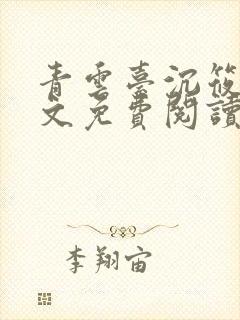 青雲臺沉筱
文免費閱讀
李翔宙